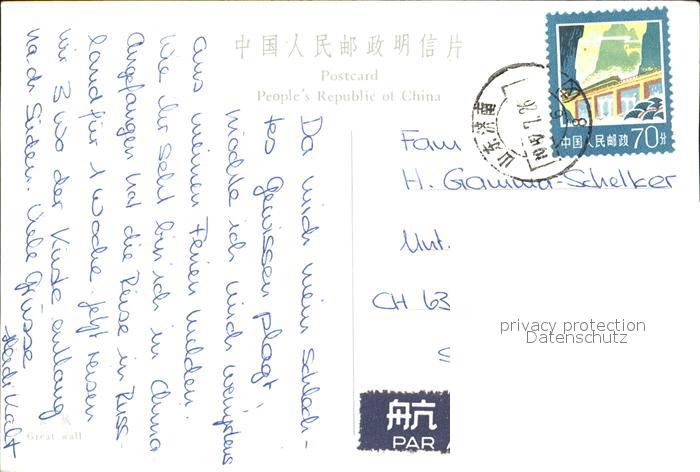 中国人民邮政明信片
Postcard
People's Republic of China
Da mich mein schlech-
tes Gewissen plagt,
möchte ich mich wenigstens
aus meinen Ferien melden.
Wie ihr seht bin ich in China.
Angefangen hat die Reise in Russ-
land für 1 Woche. Jetzt reisen
wir 3 Wo der Küste entlang
nach Süden. Viele Grüsse
Heidi Kält
Great wall
中国人民邮政 70分
山东济南
Fam
H. Gamma-Schelker
Unt.
CH 63
privacy protection
Datenschutz
航
PAR